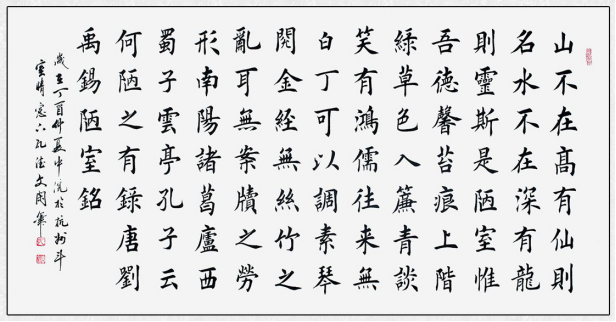 山不在髙有仙則
名水不在深有龍
則靈斯是陋室惟
吾德馨苔痕上階
綠草色入簾青談
笑有鴻儒往来無
白丁可以調素琴
閱金経無絲竹之
亂耳無案牘之勞
形南陽諸葛廬西
蜀子雲亭孔子云
何陋之有錄唐劉
禹錫陋室銘
歲在丁酉仲夏中浣於杭州斗
室晴窓